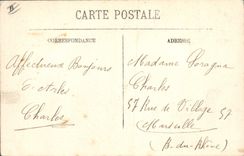 CARTE POSTALE
CORRESPONDANCE
ADRESSE
Affectueux Bonjours
Charles
Madame
Charles
57 Rue de Village 57
Marseille
(B. du Rhône)